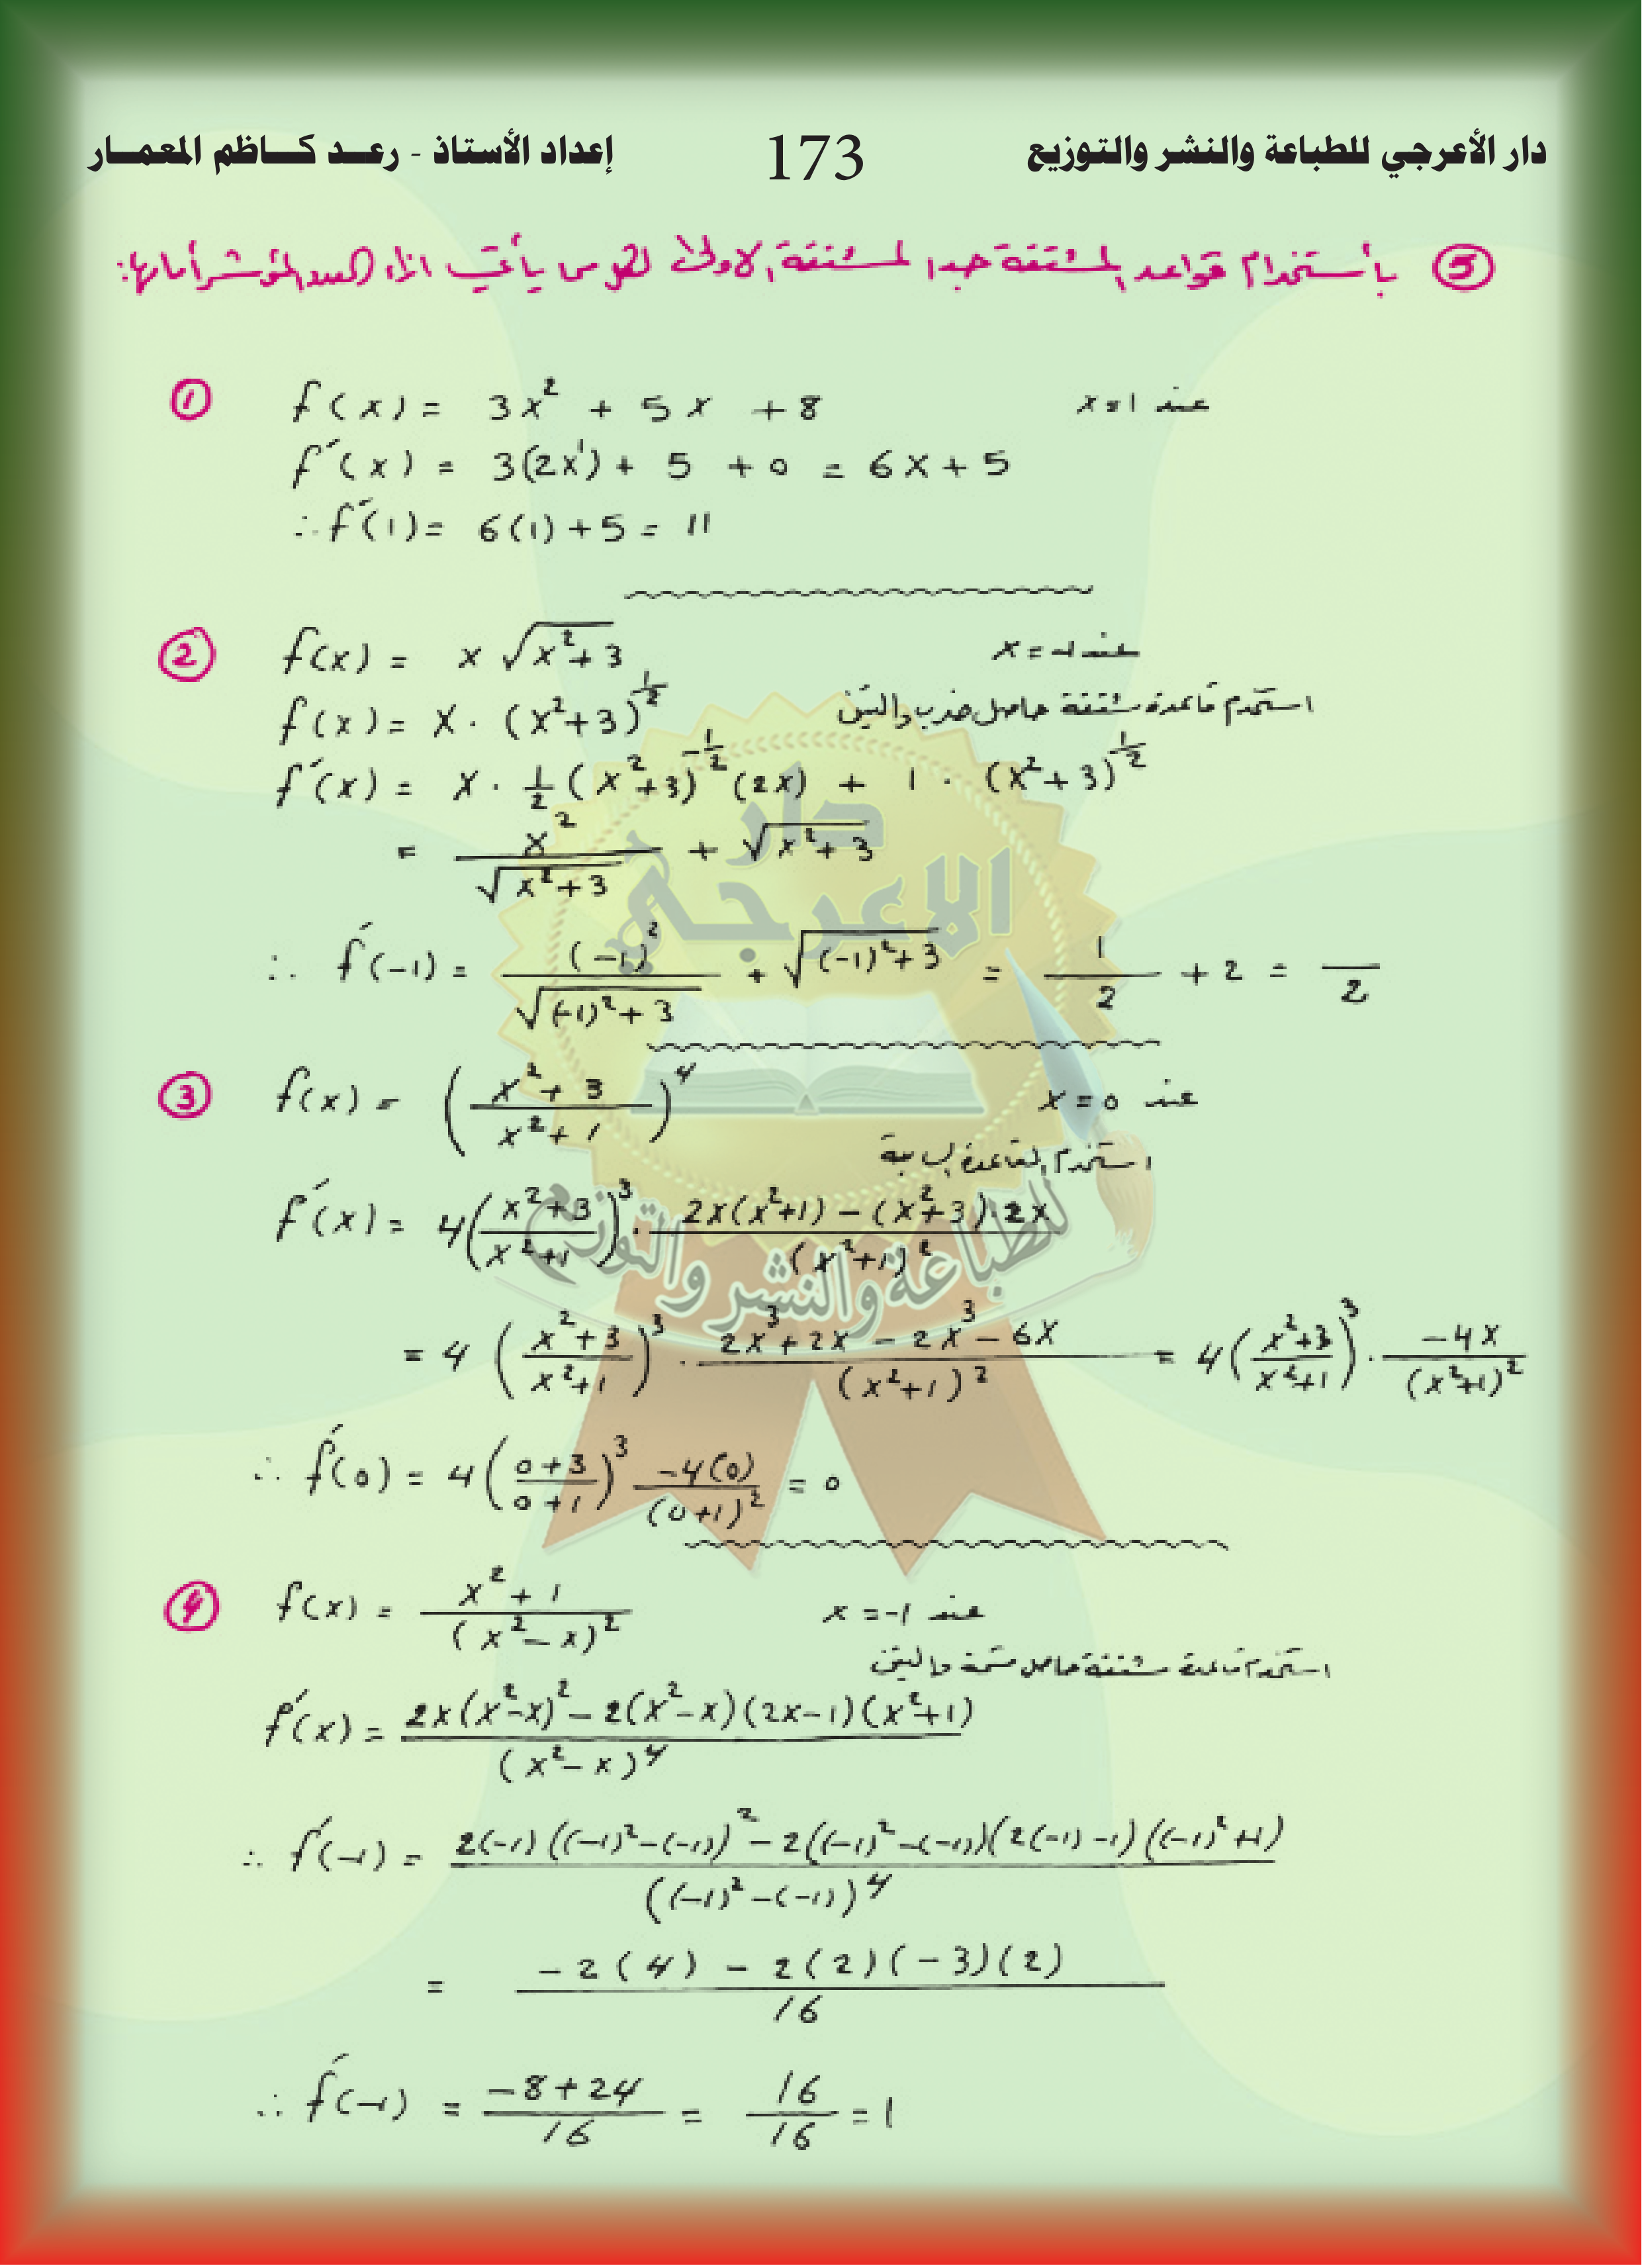 دار الأعرجي للطباعة والنشر والتوزيع 173 إعداد الأستاذ - رعـد كـاظم المعمـار
⑤ بأستخدام قواعد المشتقة جدا لمشتقة الاولى لكل مما يأتي ازاء العدد المؤشر أمامها:
① f(x) = 3x² + 5x + 8 عند x=1
f′(x) = 3(2x¹) + 5 + 0 = 6x + 5
∴ f′(1) = 6(1) + 5 = 11
② f(x) = x √(x²+3) عند x=-1
f(x) = x · (x²+3)^(1/2) استخدم قاعدة مشتقة حاصل ضرب دالتين
f′(x) = x · 1/2 (x²+3)^(-1/2) (2x) + 1 · (x²+3)^(1/2)
= x²/√(x²+3) + √(x²+3)
∴ f′(-1) = (-1)²/√((-1)²+3) + √((-1)²+3) = 1/2 + 2 = /2
③ f(x) = ((x²+3)/(x²+1))⁴ عند x=0
استخدم القاعدة
f′(x) = 4((x²+3)/(x²+1))³ · (2x(x²+1) - (x²+3)·2x)/(x²+1)²
= 4 ((x²+3)/(x²+1))³ · (2x³+2x-2x³-6x)/(x²+1)² = 4((x²+3)/(x²+1))³ · -4x/(x²+1)²
∴ f′(0) = 4((0+3)/(0+1))³ -4(0)/(0+1)² = 0
④ f(x) = (x²+1)/(x²-x)² عند x=-1
استخدم قاعدة مشتقة حاصل قسمة دالتين
f′(x) = (2x(x²-x)² - 2(x²-x)(2x-1)(x²+1))/(x²-x)⁴
∴ f′(-1) = (2(-1)((-1)²-(-1))² - 2((-1)²-(-1))(2(-1)-1)((-1)²+1))/((-1)²-(-1))⁴
= (-2(4) - 2(2)(-3)(2))/16
∴ f′(-1) = (-8+24)/16 = 16/16 = 1
دار
الاعرجي
للطباعة والنشر والتوزيع